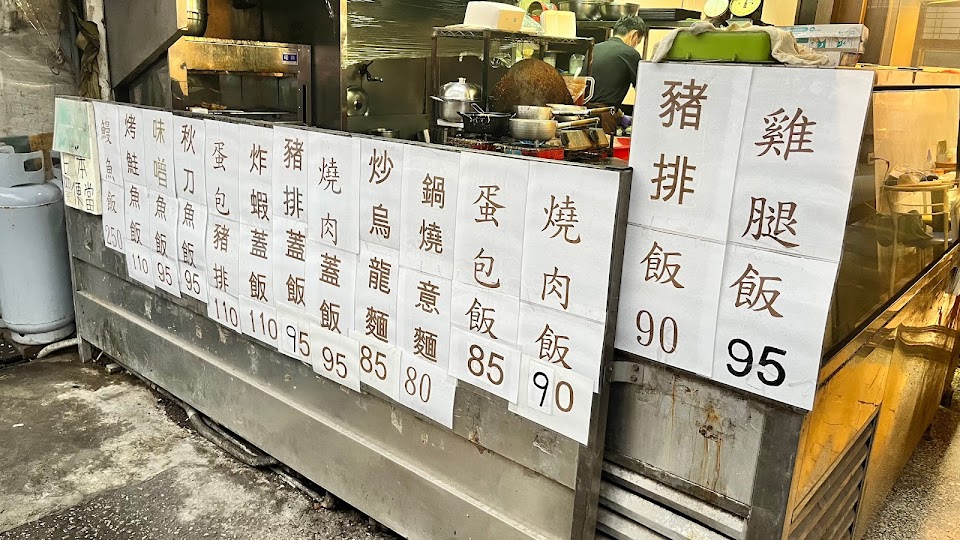 便當
鰻魚飯 250
烤鮭魚飯 110
味噌魚飯 95
秋刀魚飯 95
蛋包豬排 110
炸蝦蓋飯 110
豬排蓋飯 95
燒肉蓋飯 95
炒烏龍麵 85
鍋燒意麵 80
蛋包飯 85
燒肉飯 90
豬排飯 90
雞腿飯 95